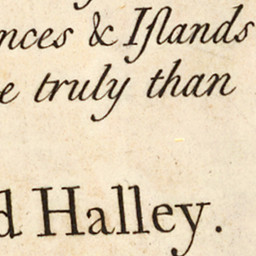 nces & Iſlands
e truly than
d Halley.